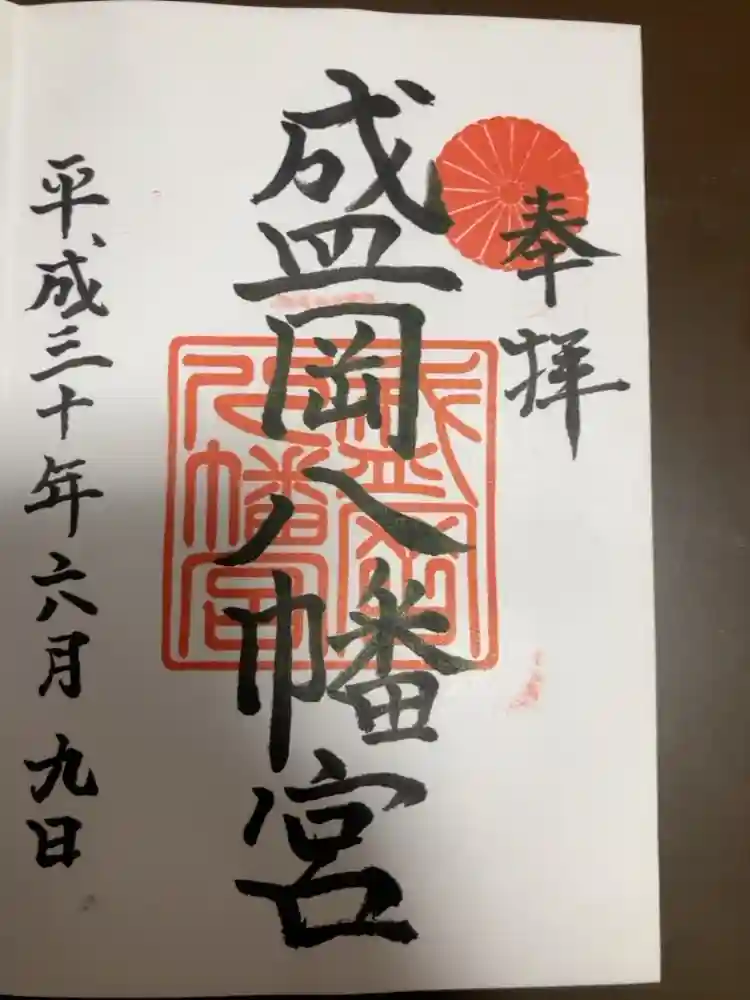 奉拝
盛岡八幡宮
盛岡八幡宮
平成三十年六月九日